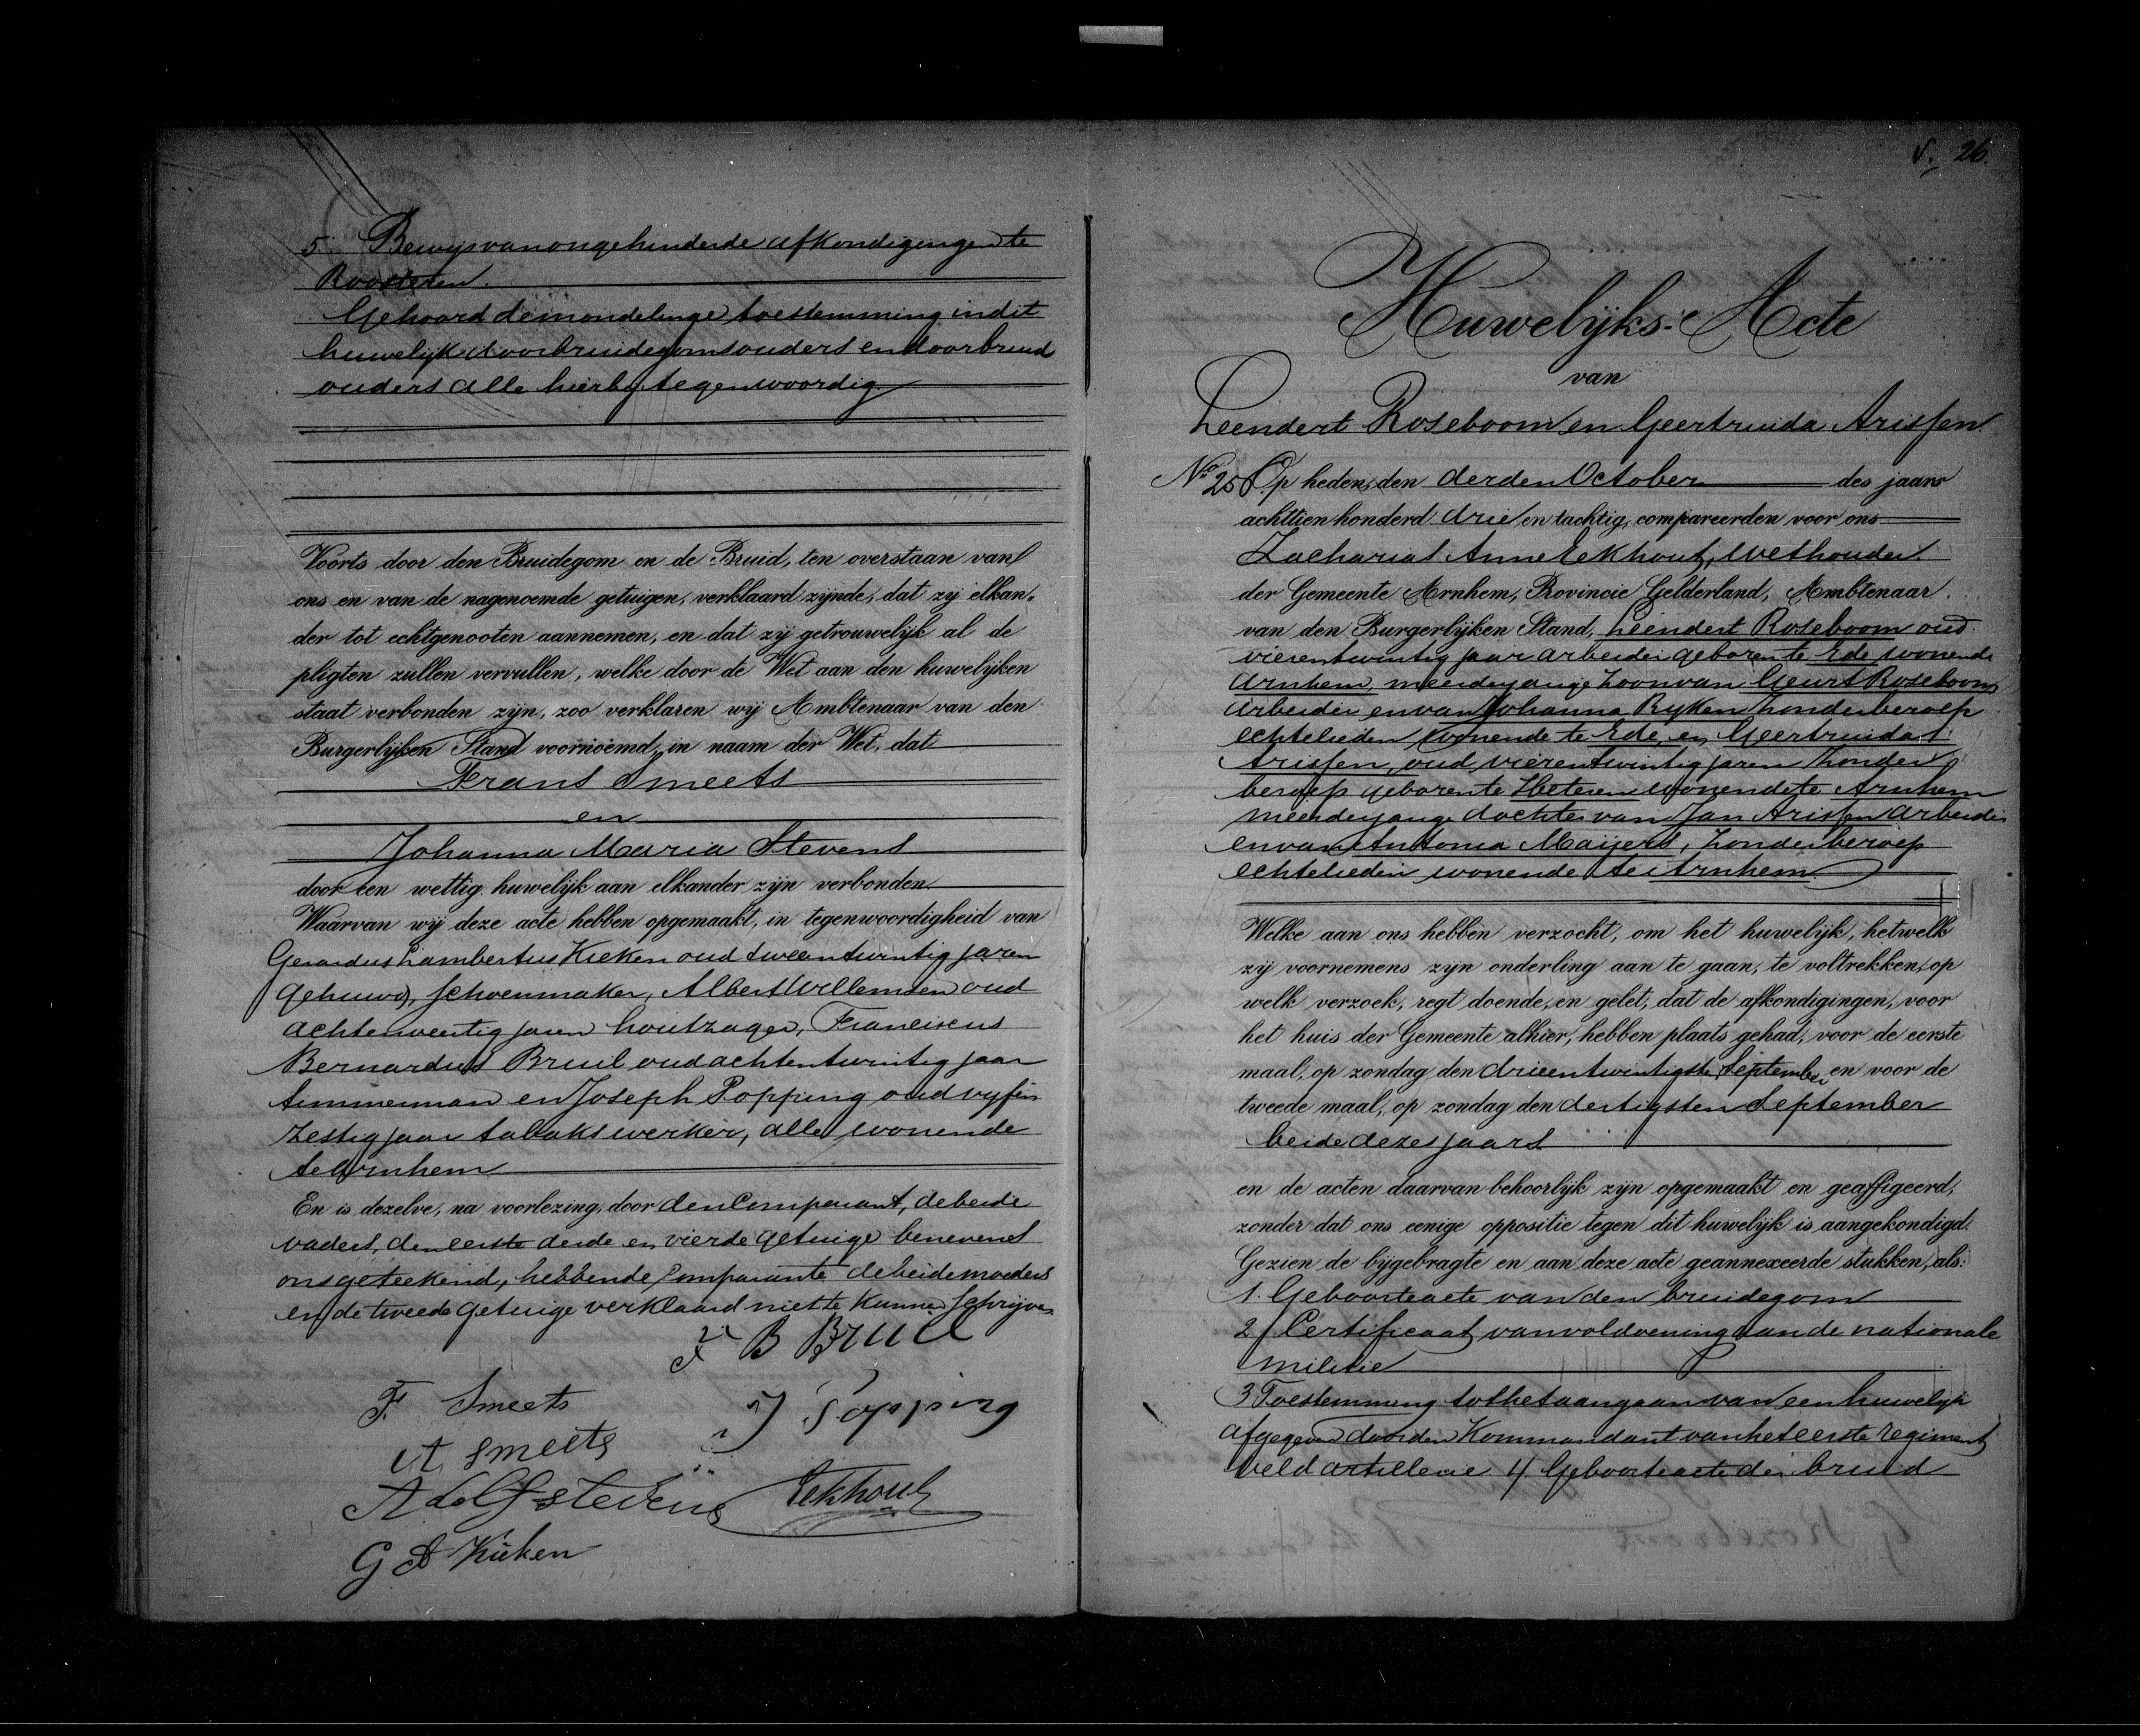 5. Bewijs van ongehinderde afkondigingen te
Roosteren.
Gehoord de mondelinge toestemming in dit
huwelijk door bruidegoms ouders en door bruid
ouders alle hierbij tegenwoordig
Voorts door den Bruidegom en de Bruid, ten overstaan van
ons en van de nagenoemde getuigen, verklaard zijnde, dat zij elkan-
der tot echtgenooten aannemen, en dat zij getrouwelijk al de
pligten zullen vervullen, welke door de Wet aan den huwelijken
staat verbonden zijn, zoo verklaren wij Ambtenaar van den
Burgerlijken Stand voornoemd, in naam der Wet, dat
Frans Smeets
en
Johanna Maria Stevens
door een wettig huwelijk aan elkander zijn verbonden.
Waarvan wij deze acte hebben opgemaakt, in tegenwoordigheid van
Gerardus Lambertus Kieken oud tweeentwintig jaren
gehuwd, schoenmaker, Albert Willemsen oud
achtenveertig jaren houtzager, Franciscus
Bernardus Bruil oud achtentwintig jaar
timmerman en Joseph Popping oud vyfen
zestig jaar tabakswerker, alle wonende
te Arnhem
En is dezelve, na voorlezing, door den Comparant, de beide
vaders, den eerste derde en vierde getuige benevens
ons geteekend, hebbende Comparante de beide moeders
en de tweede getuige verklaard niet te kunnen schrijven
F B Bruil
F. Smeets
J Popping
A Smeets
Adolf stevens
Eekhout
G L Kieken
V. 26.
Huwelijks-Acte
van
Leendert Roseboom en Geertruida Arissen
No. 256 Op heden, den derden October des jaars
achttien honderd drie en tachtig, compareerden voor ons
Zacharias Anne Eekhout, wethouder
der Gemeente Arnhem, Provincie Gelderland, Ambtenaar
van den Burgerlijken Stand, Leendert Roseboom oud
vierentwintig jaar arbeider geboren te Ede wonende
Arnhem, meerderjarige zoon van Geurt Roseboom
Arbeider en van Johanna Ryken zonder beroep
echtelieden wonende te Ede, en Geertruida
Arissen, oud vierentwintig jaren zonder
beroep geboren te Heteren wonende te Arnhem
meerderjarige dochter van Jan Arissen arbeider
en van Antonia Maijers, zonder beroep
echtelieden wonende te Arnhem
Welke aan ons hebben verzocht, om het huwelijk, hetwelk
zij voornemens zijn onderling aan te gaan, te voltrekken, op
welk verzoek, regt doende, en gelet, dat de afkondigingen, voor
het huis der Gemeente alhier, hebben plaats gehad, voor de eerste
maal, op zondag den drieentwintigste September en voor de
tweede maal, op zondag den dertigsten September
beide dezes jaars
en de acten daarvan behoorlijk zijn opgemaakt en geaffigeerd,
zonder dat ons eenige oppositie tegen dit huwelijk is aangekondigd.
Gezien de bijgebragte en aan deze acte geannexeerde stukken, als:
1. Geboorteacte van den bruidegom
2/ Certificaat van voldoening aan de nationale
militie
3 Toestemming tot het aangaan van een huwelijk
afgegeven door den Kommandant van het eerste regiment
veld artillerie 4/ Geboorteacte der bruid